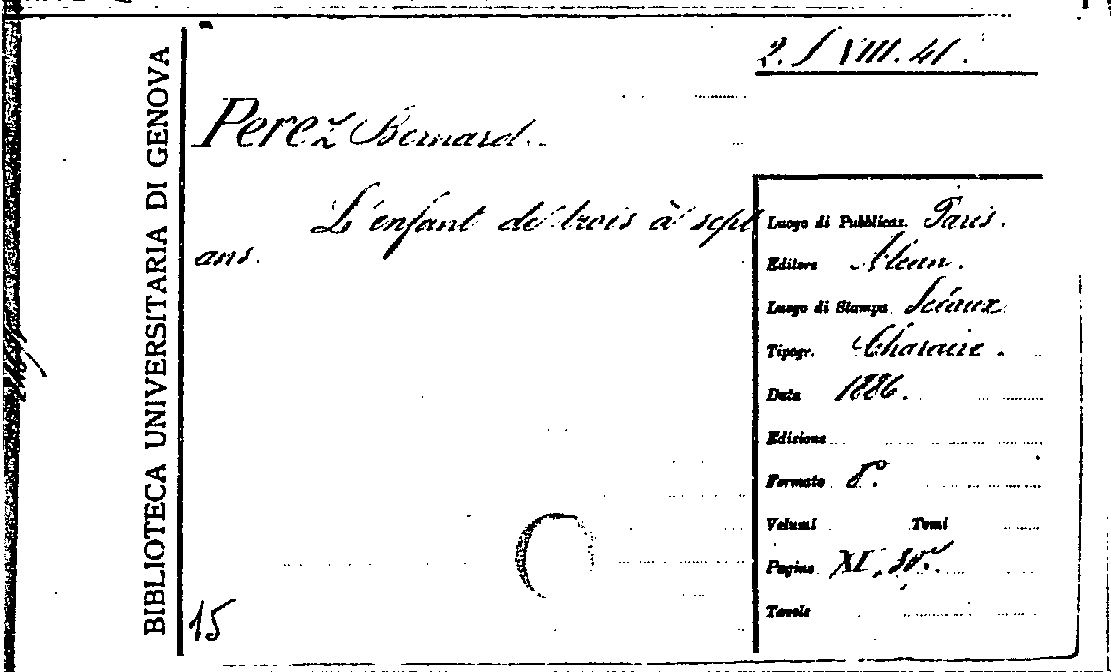 BIBLIOTECA UNIVERSITARIA DI GENOVA
2. S VIII. 41.
Perez Bernard.
L'enfant de trois à sept
ans.
Luogo di Pubblicaz. Paris.
Editore Alcan.
Luogo di Stampa Sceaux
Tipogr. Charaire.
Data 1886.
Edizione
Formato 8°.
Volumi Tomi
Pagine XI,
Tavole
15